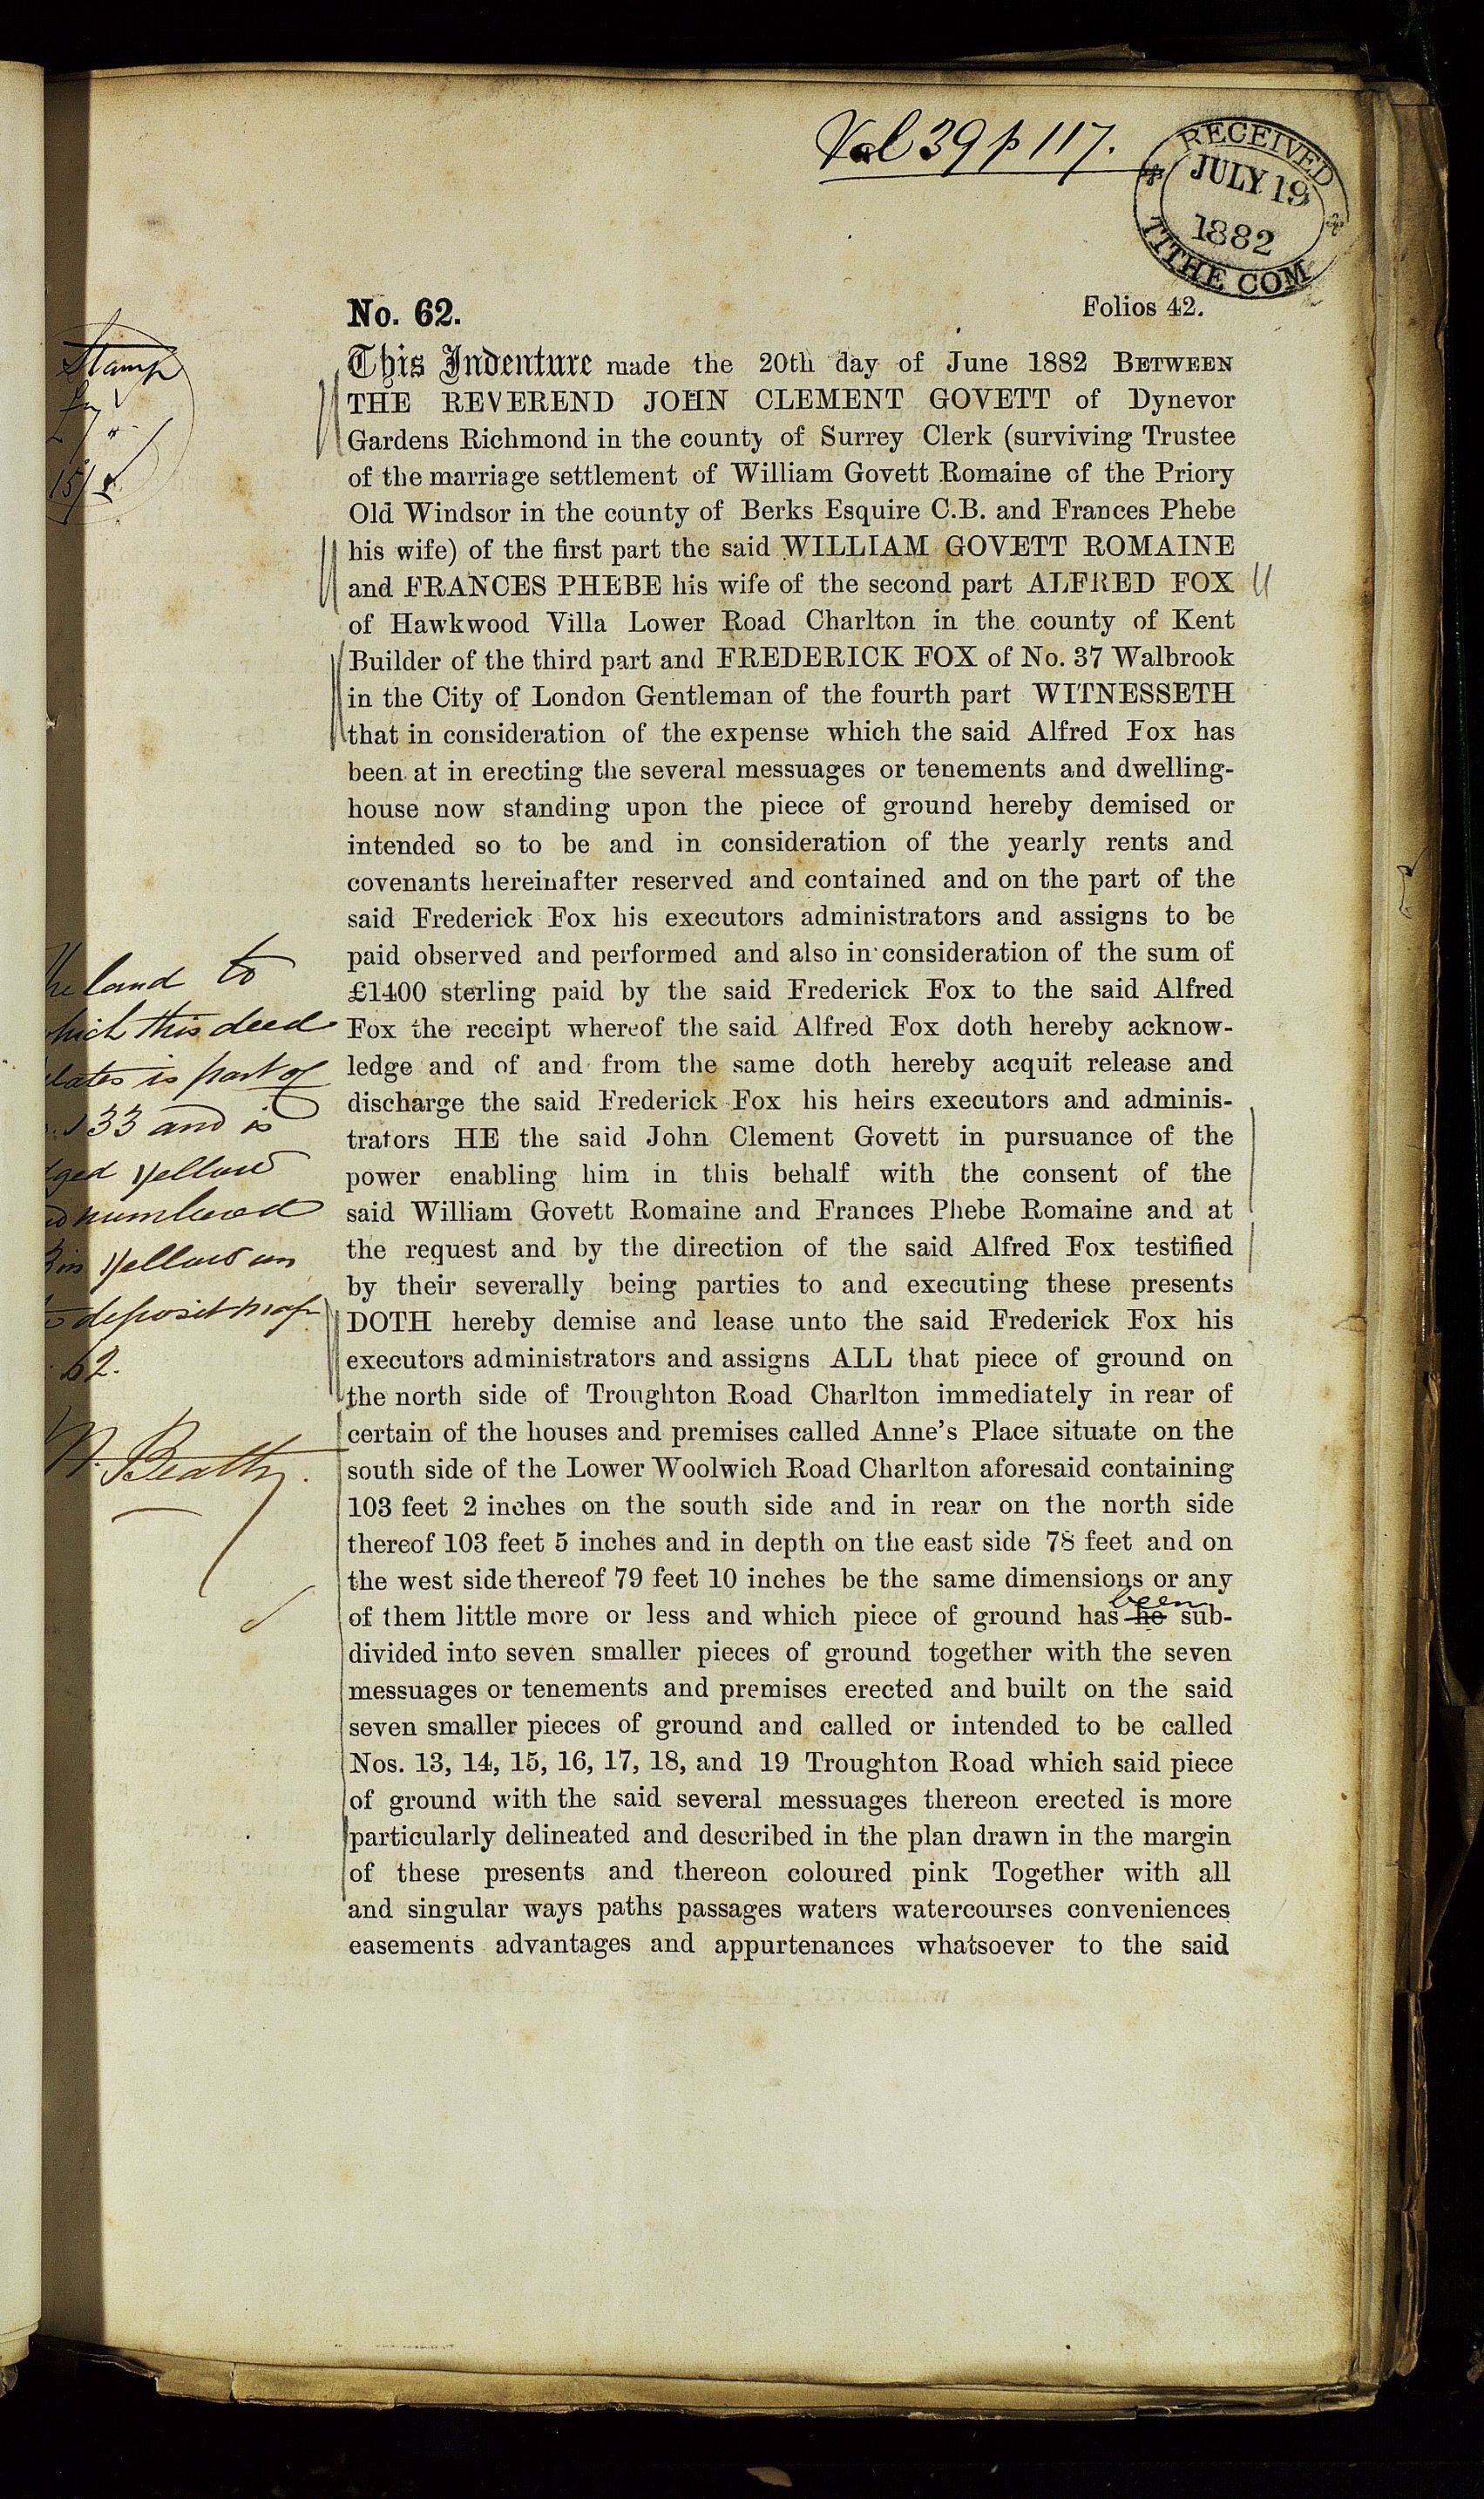 Vol 39 p 117.
RECEIVED
JULY 19
1882
TITHE COM
No. 62.
Folios 42.
Stamp
15/
This Indenture made the 20th day of June 1882 BETWEEN
THE REVEREND JOHN CLEMENT GOVETT of Dynevor
Gardens Richmond in the county of Surrey Clerk (surviving Trustee
of the marriage settlement of William Govett Romaine of the Priory
Old Windsor in the county of Berks Esquire C.B. and Frances Phebe
his wife) of the first part the said WILLIAM GOVETT ROMAINE
and FRANCES PHEBE his wife of the second part ALFRED FOX
of Hawkwood Villa Lower Road Charlton in the county of Kent
Builder of the third part and FREDERICK FOX of No. 37 Walbrook
in the City of London Gentleman of the fourth part WITNESSETH
that in consideration of the expense which the said Alfred Fox has
been at in erecting the several messuages or tenements and dwelling-
house now standing upon the piece of ground hereby demised or
intended so to be and in consideration of the yearly rents and
covenants hereinafter reserved and contained and on the part of the
said Frederick Fox his executors administrators and assigns to be
paid observed and performed and also in consideration of the sum of
£1400 sterling paid by the said Frederick Fox to the said Alfred
Fox the receipt whereof the said Alfred Fox doth hereby acknow-
ledge and of and from the same doth hereby acquit release and
discharge the said Frederick Fox his heirs executors and adminis-
trators HE the said John Clement Govett in pursuance of the
power enabling him in this behalf with the consent of the
said William Govett Romaine and Frances Phebe Romaine and at
the request and by the direction of the said Alfred Fox testified
by their severally being parties to and executing these presents
DOTH hereby demise and lease unto the said Frederick Fox his
executors administrators and assigns ALL that piece of ground on
the north side of Troughton Road Charlton immediately in rear of
certain of the houses and premises called Anne's Place situate on the
south side of the Lower Woolwich Road Charlton aforesaid containing
103 feet 2 inches on the south side and in rear on the north side
thereof 103 feet 5 inches and in depth on the east side 78 feet and on
the west side thereof 79 feet 10 inches be the same dimensions or any
of them little more or less and which piece of ground has he been sub-
divided into seven smaller pieces of ground together with the seven
messuages or tenements and premises erected and built on the said
seven smaller pieces of ground and called or intended to be called
Nos. 13, 14, 15, 16, 17, 18, and 19 Troughton Road which said piece
of ground with the said several messuages thereon erected is more
particularly delineated and described in the plan drawn in the margin
of these presents and thereon coloured pink Together with all
and singular ways paths passages waters watercourses conveniences
easements advantages and appurtenances whatsoever to the said
land to
this deed
is part of
33 and is
yellow
numbered
yellow on
deposit map
62.
Beatty.